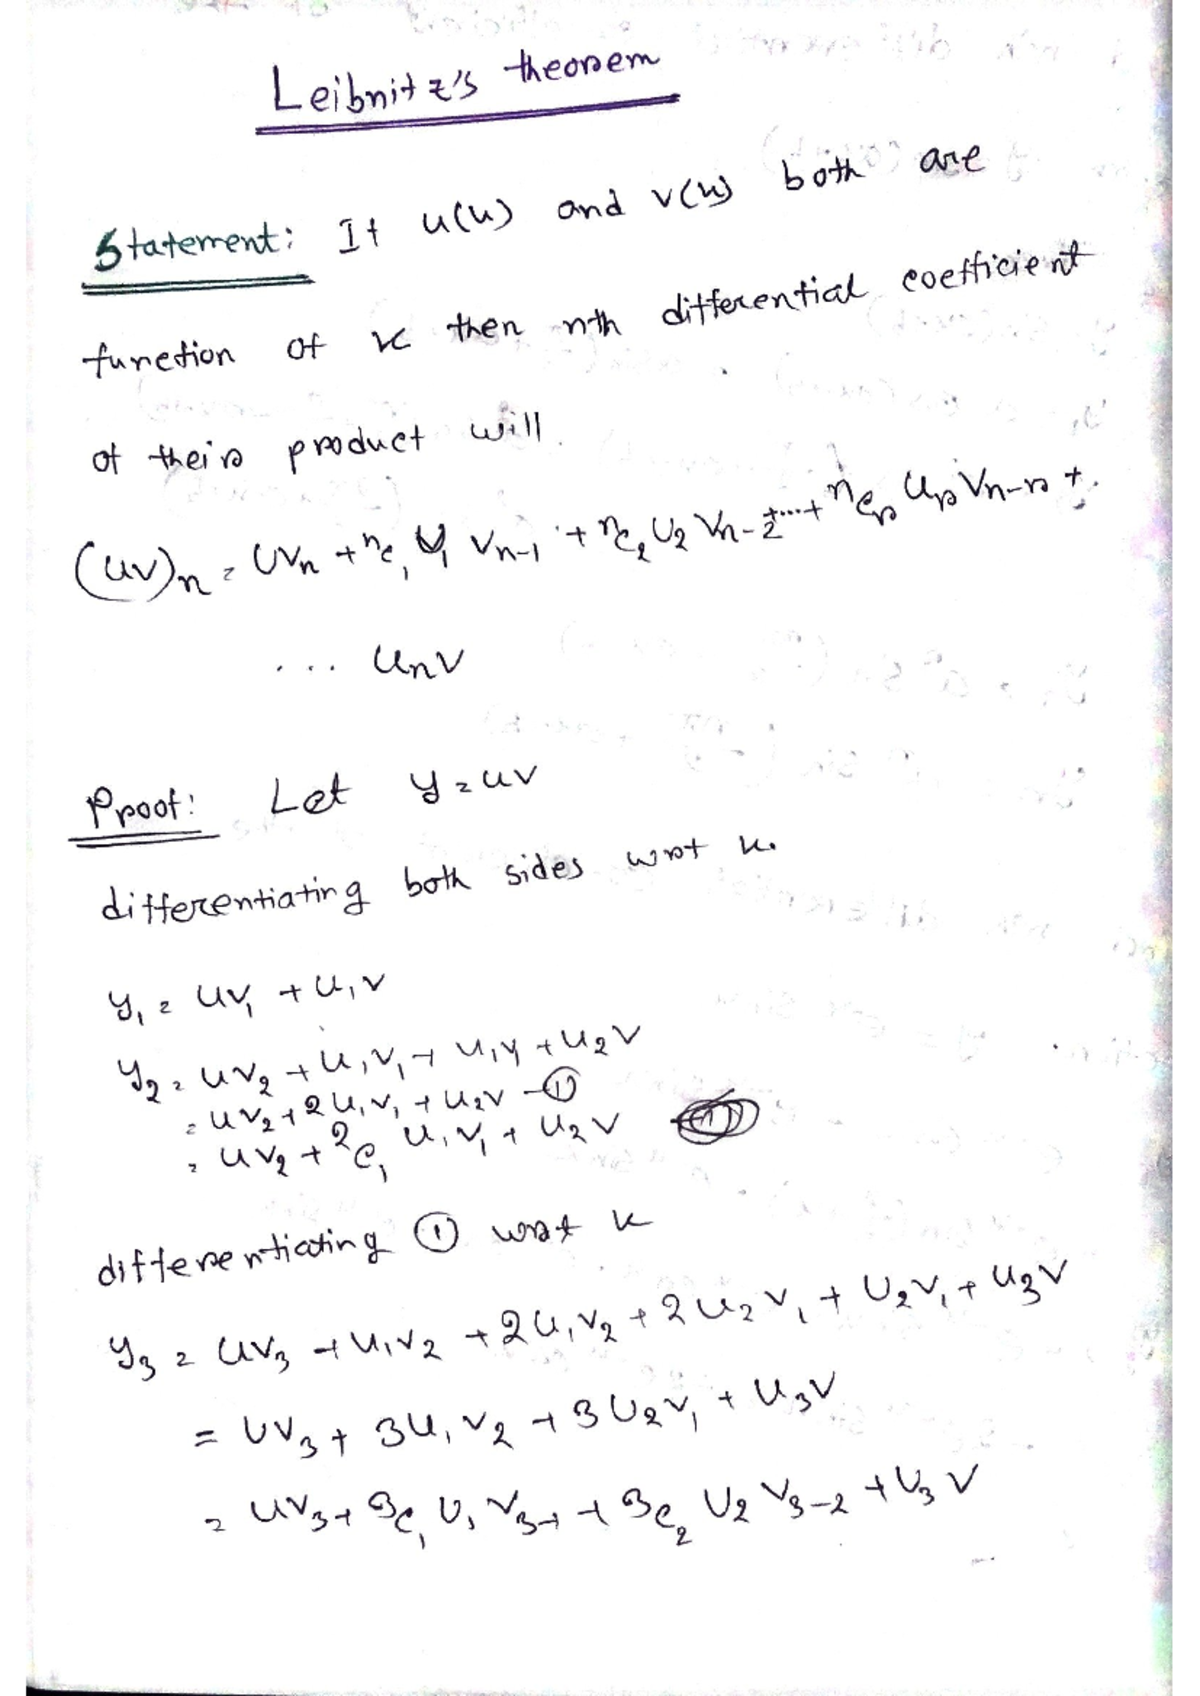 Leibnitz's theorem
Statement: If u(x) and v(x) both are
function of x then nth differential coefficient
of their product will
(uv)n = UVn + nc₁ U₁ Vn-1 + nc₂ U₂ Vn-2 +....+ ncr Ur Vn-r +.
... UnV
Proof: Let y = uv
differentiating both sides wrt x.
y₁ = uv₁ + u₁v
y₂ = uv₂ + u₁v₁ + u₁v₁ + u₂v
= uv₂ + 2u₁v₁ + u₂v —①
= uv₂ + 2c₁ u₁v₁ + u₂v
differentiating ① wrt x
y₃ = uv₃ + u₁v₂ + 2u₁v₂ + 2u₂v₁ + u₂v₁ + u₃v
= uv₃ + 3u₁v₂ + 3u₂v₁ + u₃v
= uv₃ + 3c₁ u₁ v₃₋₁ + 3c₂ u₂ v₃₋₂ + u₃ v